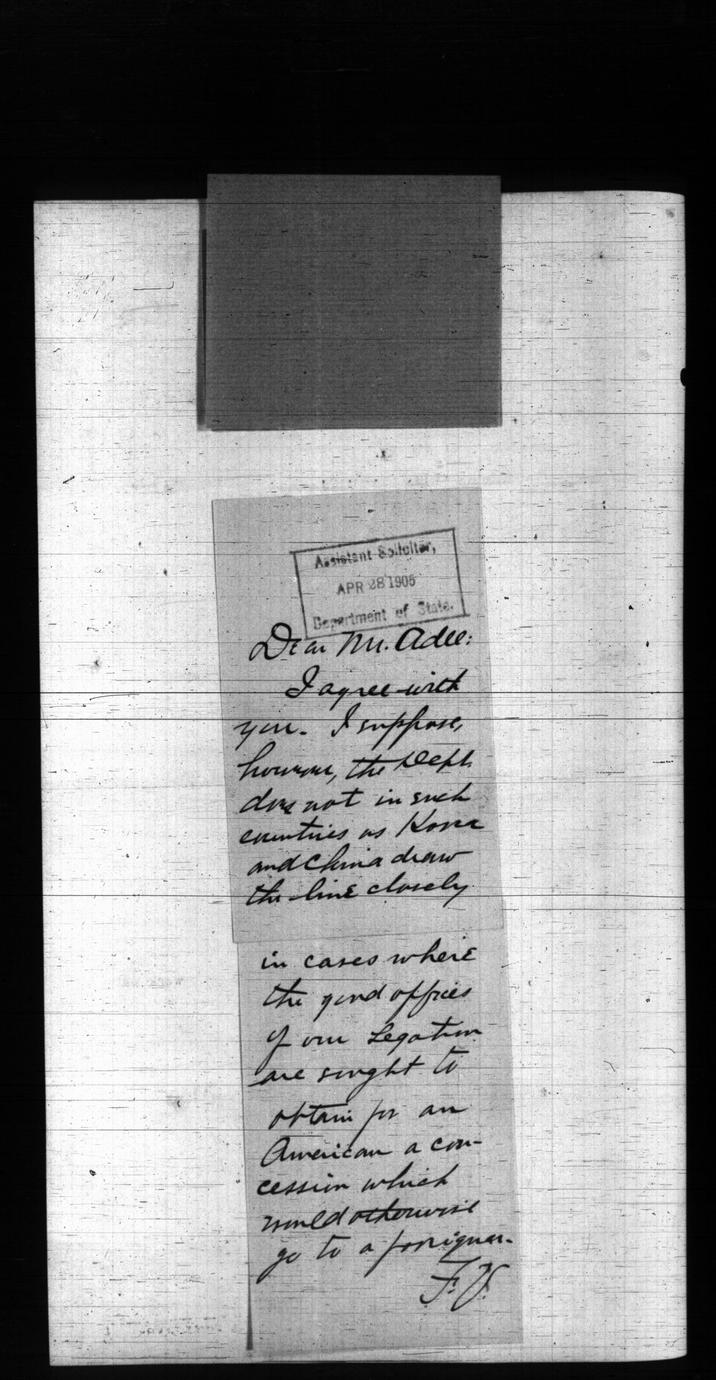 Assistant Solicitor,
APR 28 1905
Department of State.
Dear Mr. Adee:
I agree with
you. I suppose,
however, the Dept.
does not in such
countries as Korea
and China draw
the line closely
in cases where
the good offices
of our Legation
are sought to
obtain for an
American a con-
cession which
would otherwise
go to a foreigner.